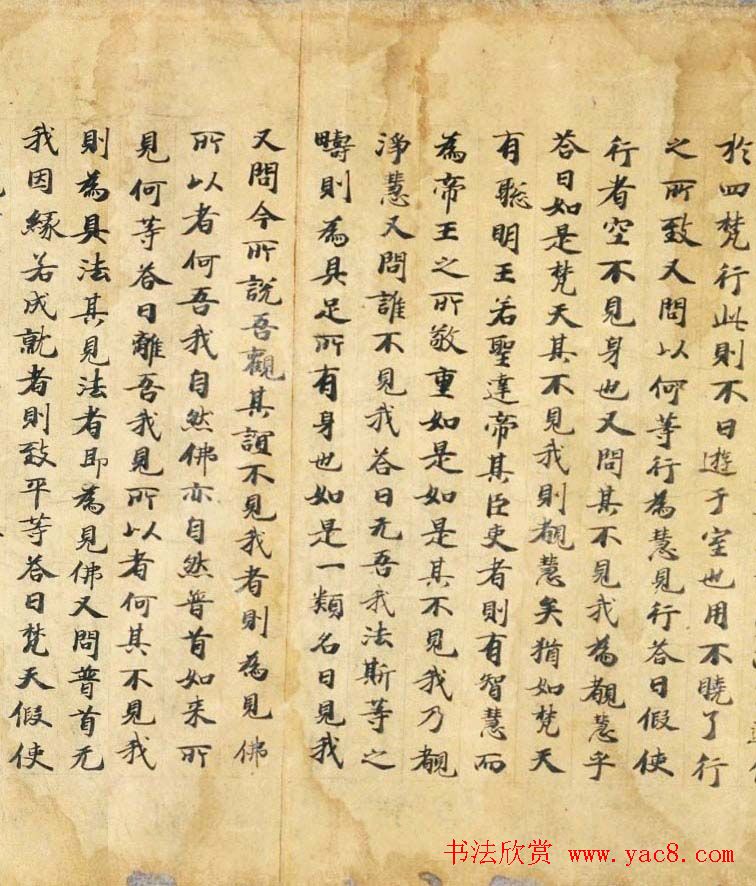 於四梵行此則不曰遊于室也用不曉了行
之所致又問以何等行為慧見行荅曰假使
行者空不見身也又問其不見我為覩慧乎
荅曰如是梵天其不見我則覩慧矣猶如梵天
有聡明王若聖達帝其臣吏者則有智慧而
為帝王之所敬重如是如是其不見我乃覩
淨慧又問誰不見我荅曰无吾我法斯等之
疇則為具足所有身也如是一類名曰見我
又問今所說吾觀其誼不見我者則為見佛
所以者何吾我自然佛亦自然普首如来所
見何等荅曰離吾我見所以者何其不見我
則為具法其見法者即為見佛又問普首无
我因緣若成就者則致平等荅曰梵天假使
书法欣赏 www.yac8.com